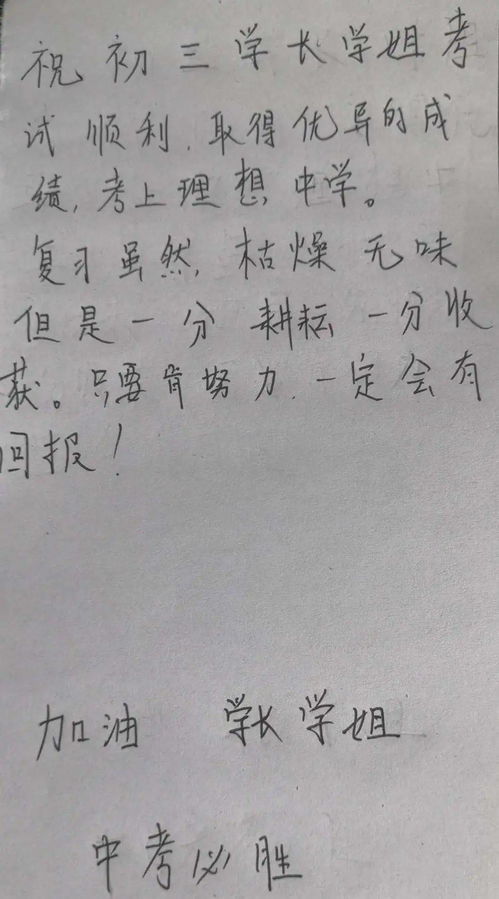 祝初三学长学姐考
试顺利,取得优异的成
绩,考上理想中学。
复习虽然,枯燥无味
但是一分耕耘一分收
获。只要肯努力,一定会有
回报！
加油 学长学姐
中考必胜